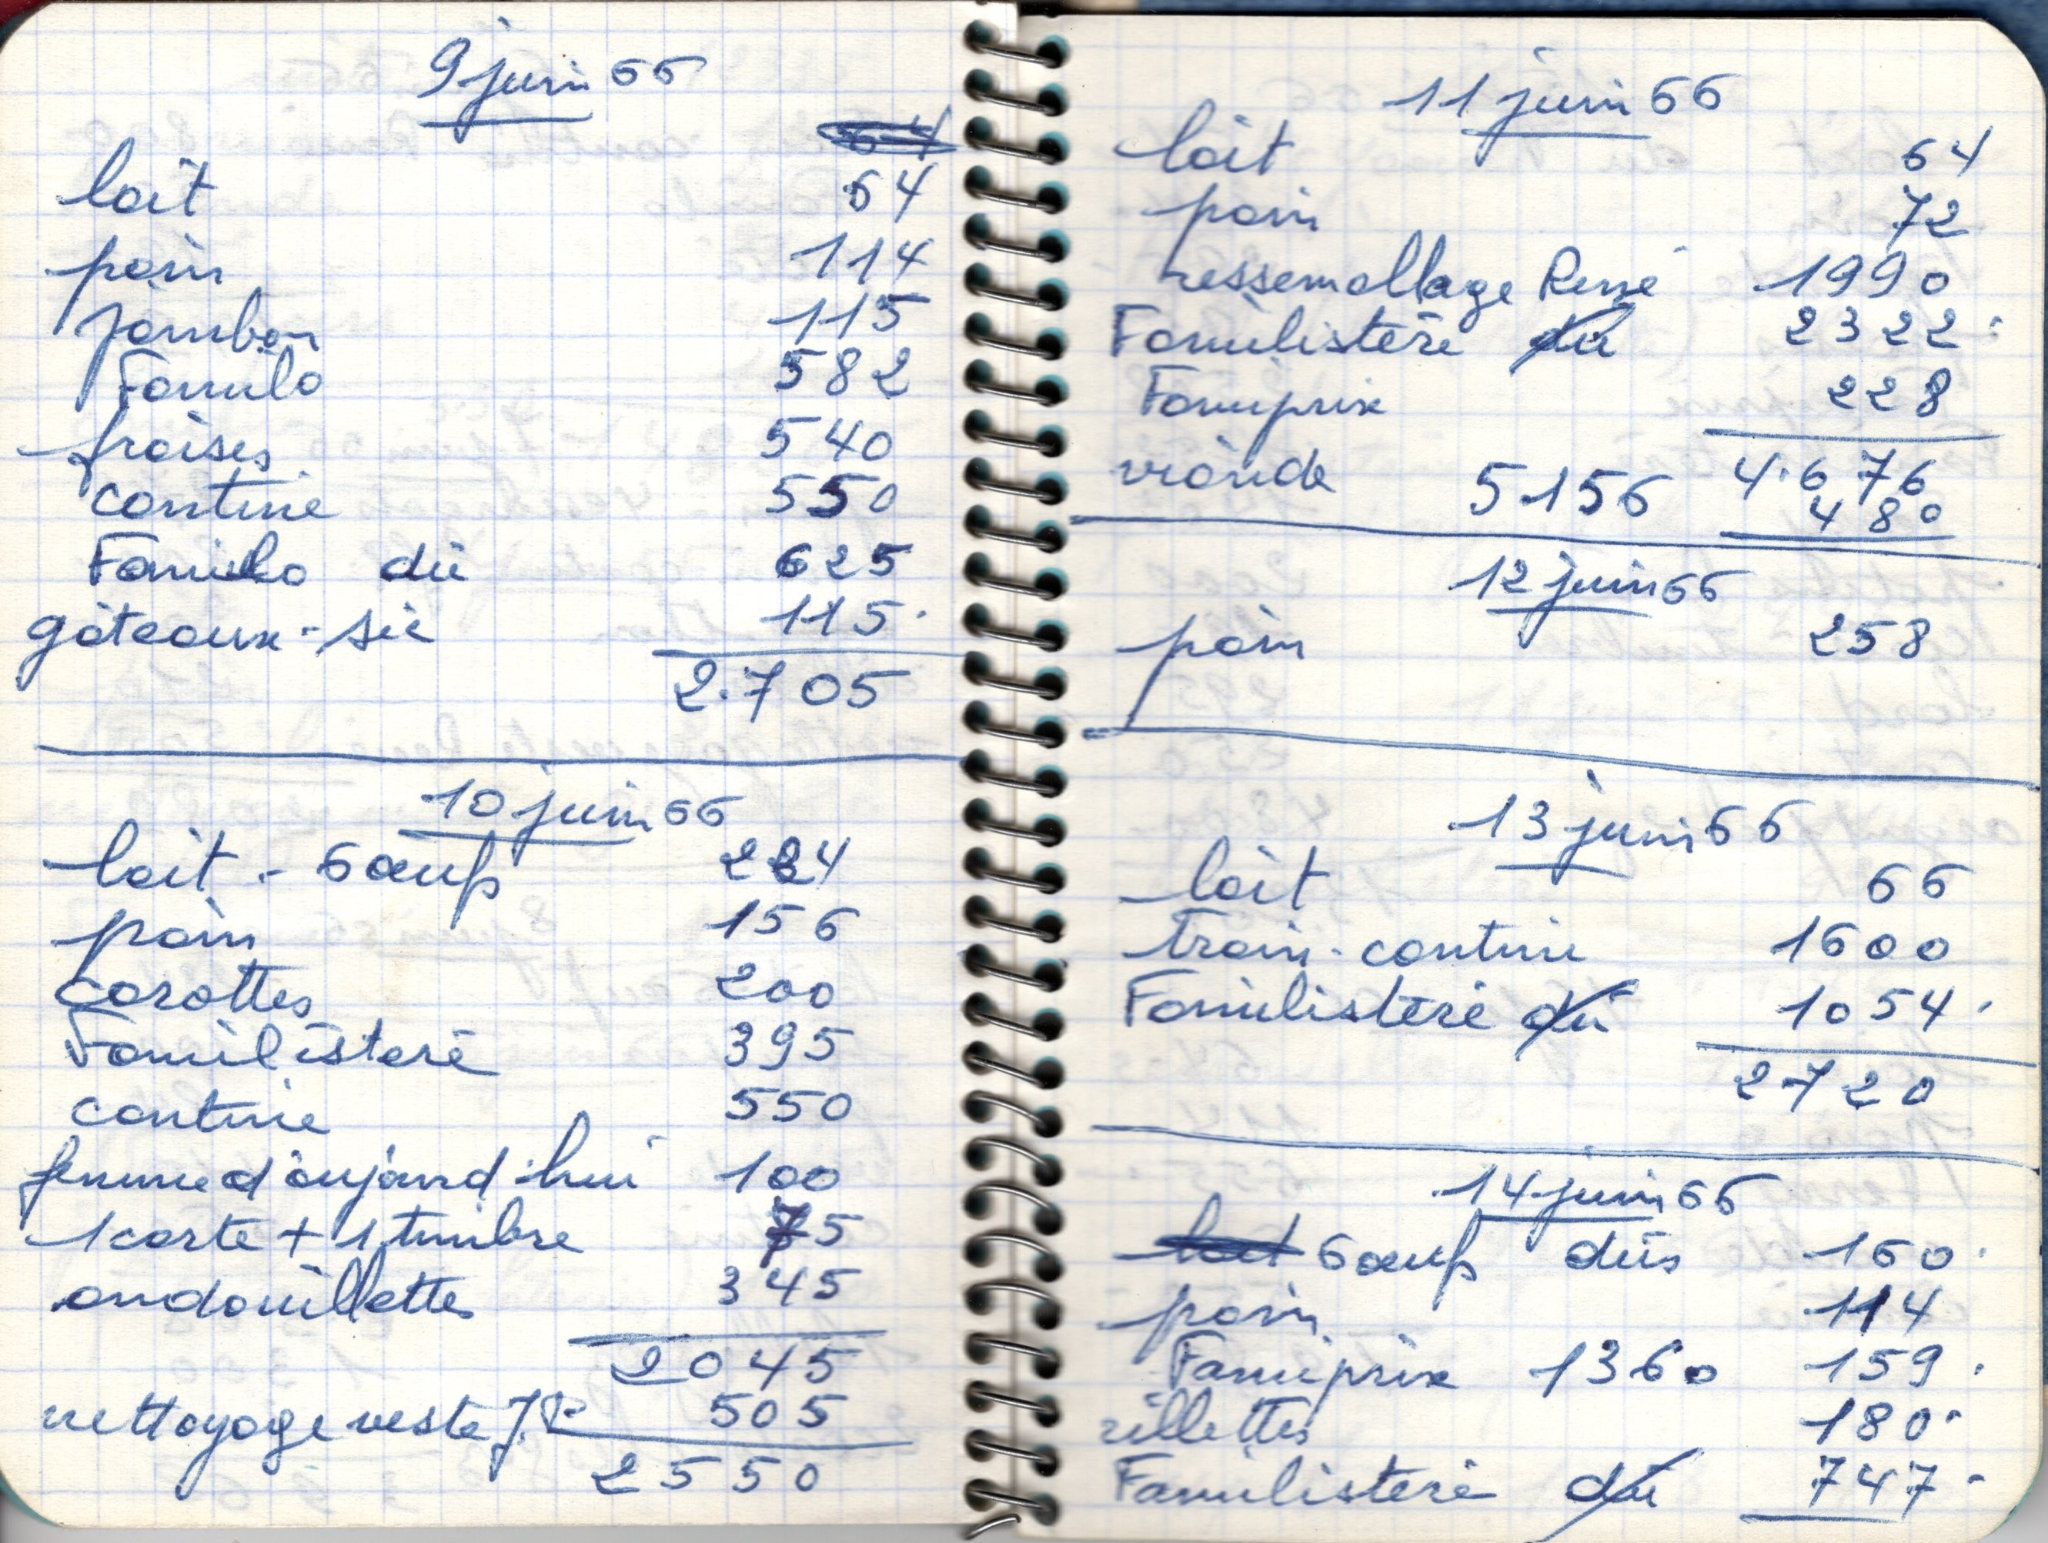 9 juin 66
lait 64
pain 114
jambon 115
Famila 582
fraises 540
cantine 550
Famila dû 625
gâteaux-sec 115.
2.705
10 juin 66
lait - 6 œufs 224
pain 156
carottes 200
Familistère 395
cantine 550
femme d'aujourd'hui 100
1 carte + 1 timbre 75
andouillettes 345
2045
nettoyage veste 505
2550
11 juin 66
lait 64
pain 72
ressemellage René 1990
Familistère dû 2322.
Famiprix 228
4.676
viande 5156 480
12 juin 66
pain 258
13 juin 66
lait 66
train-cantine 1600
Familistère dû 1054.
2720
14 juin 66
6 œufs dûs 160.
pain 114
Famiprix 1360 159.
rillettes 180.
Familistère dû 747.